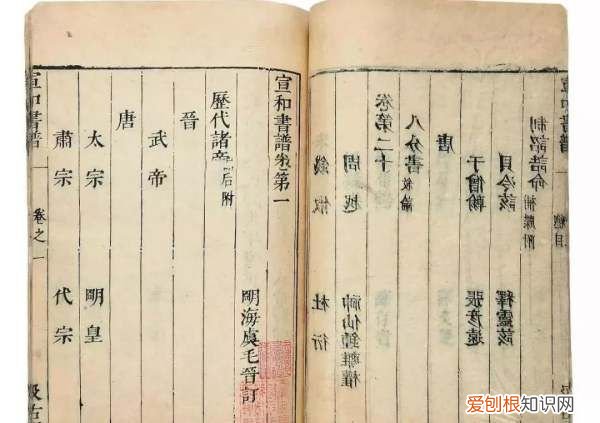 錢俶 杜衍
周越 神仙鍾離權
卷第二十
八分書 敘論
唐
于僧翰 張彥遠
貝泠該 釋靈該
制詔誥命 補牒附
宣和書譜 總目
宣和書譜卷第一
明海虞毛晉訂
歷代諸帝 后附
晉
武帝
唐
太宗 明皇
肅宗 代宗
宣和書譜 卷之一 汲古
爱刨根知识网